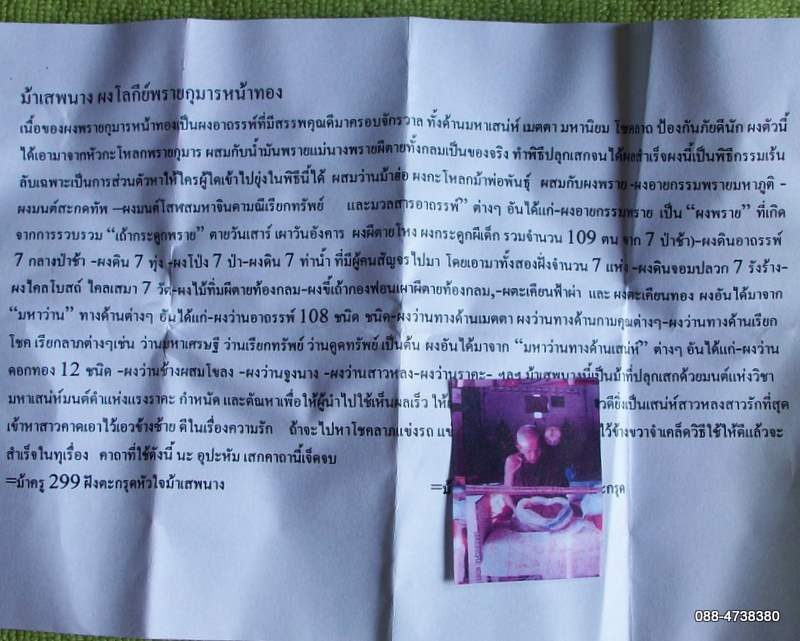 ม้าเสพนาง ผงโลกีย์พรายกุมารหน้าทอง
เนื้อของผงพรายกุมารหน้าทองเป็นผงอาถรรพ์ที่มีสรรพคุณดีมาครอบจักรวาล ทั้งด้านมหาเสน่ห์ เมตตา มหานิยม โชคลาถ ป้องกันภัยดีนัก ผงตัวนี้
ได้เอามาจากหัวกะโหลกพรายกุมาร ผสมกับน้ำมันพรายแม่นางพรายผีตายทั้งกลมเป็นของจริง ทำพิธีปลุกเสกจนได้ผลสำเร็จผงนี้เป็นพิธีกรรมเร้น
ลับเฉพาะเป็นการส่วนตัวหาให้ใครผู้ใดเข้าไปยุ่งในพิธีนี้ได้ ผสมว่านม้าฮ่อ ผงกะโหลกม้าพ่อพันธุ์ ผสมกับผงพราย -ผงอายกรรมพรายมหาภูติ -
ผงมนต์สะกดทัพ –ผงมนต์โสฬสมหาจินดามณีเรียกทรัพย์ และมวลสารอาถรรพ์" ต่างๆ อันได้แก่-ผงอายกรรมพราย เป็น "ผงพราย" ที่เกิด
จากการรวบรวม "เถ้ากระดูกพราย" ตายวันเสาร์ เผาวันอังคาร ผงผีตายโหง ผงกระดูกผีเด็ก รวมจำนวน 109 ตน จาก 7 ป่าช้า)-ผงดินอาถรรพ์
7 กลางป่าช้า -ผงดิน 7 ทุ่ง -ผงโป่ง 7 ป่า-ผงดิน 7 ท่าน้ำ ที่มีผู้คนสัญจรไปมา โดยเอามาทั้งสองฝั่งจำนวน 7 แห่ง -ผงดินจอมปลวก 7 รังร้าง-
ผงไคลโบสถ์ ไคลเสมา 7 วัด-ผงไม้ทิ่มผีตายท้องกลม-ผงขี้เถ้ากองฟอนเผาผีตายท้องกลม,-ผตะเคียนฟ้าผ่า และ ผงตะเคียนทอง ผงอันได้มาจาก
"มหาว่าน" ทางด้านต่างๆ อันได้แก่-ผงว่านอาถรรพ์ 108 ชนิด ชนิด-ผงว่านทางด้านเมตตา ผงว่านทางด้านกามคุณต่างๆ-ผงว่านทางด้านเรียก
โชค เรียกลาภต่างๆเช่น ว่านมหาเศรษฐี ว่านเรียกทรัพย์ ว่านดูดทรัพย์เป็นต้น ผงอันได้มาจาก "มหาว่านทางด้านเสน่ห์" ต่างๆ อันได้แก่-ผงว่าน
ดอกทอง 12 ชนิด -ผงว่านช้างผสมโขลง -ผงว่านจูงนาง -ผงว่านสาวหลง-ผงว่านราคะ- ฯลฯ ม้าเสพนางนี้เป็นม้าที่ปลุกเสกด้วยมนต์แห่งวิชา
มหาเสน่ห์มนต์ดำแห่งแรงราคะ กำหนัด และตัณหาเพื่อให้ผู้นำไปใช้เห็นผลเร็ว ดียิ่งเป็นเสน่ห์สาวหลงสาวรักที่สุด
เข้าหาสาวคาดเอาไว้เอวข้างซ้าย ดีในเรื่องความรัก ถ้าจะไปหาโชคลาภแข่งรถ ไว้ข้างขวาจำเคล็ดวิธีใช้ให้ดีแล้วจะ
สำเร็จในทุเรื่อง คาถาที่ใช้ดังนี้ นะ อุปะหัม เสกคาถานี้เจ็ดจบ
=ม้าครู 299 ฝังตะกรุดหัวใจม้าเสพนาง
088-4738380